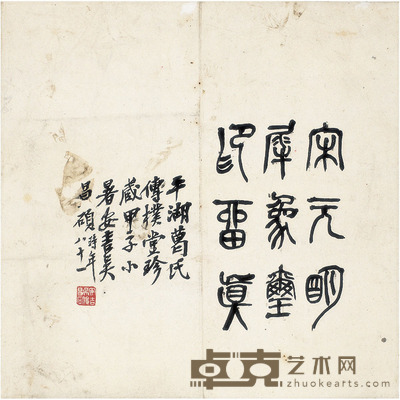 宋元明
犀象璽
印留真
平湖葛氏
傳樸堂珍
藏甲子小
暑安吉吳
昌碩時年
八十一
卓克艺术网
zhuokearts.com